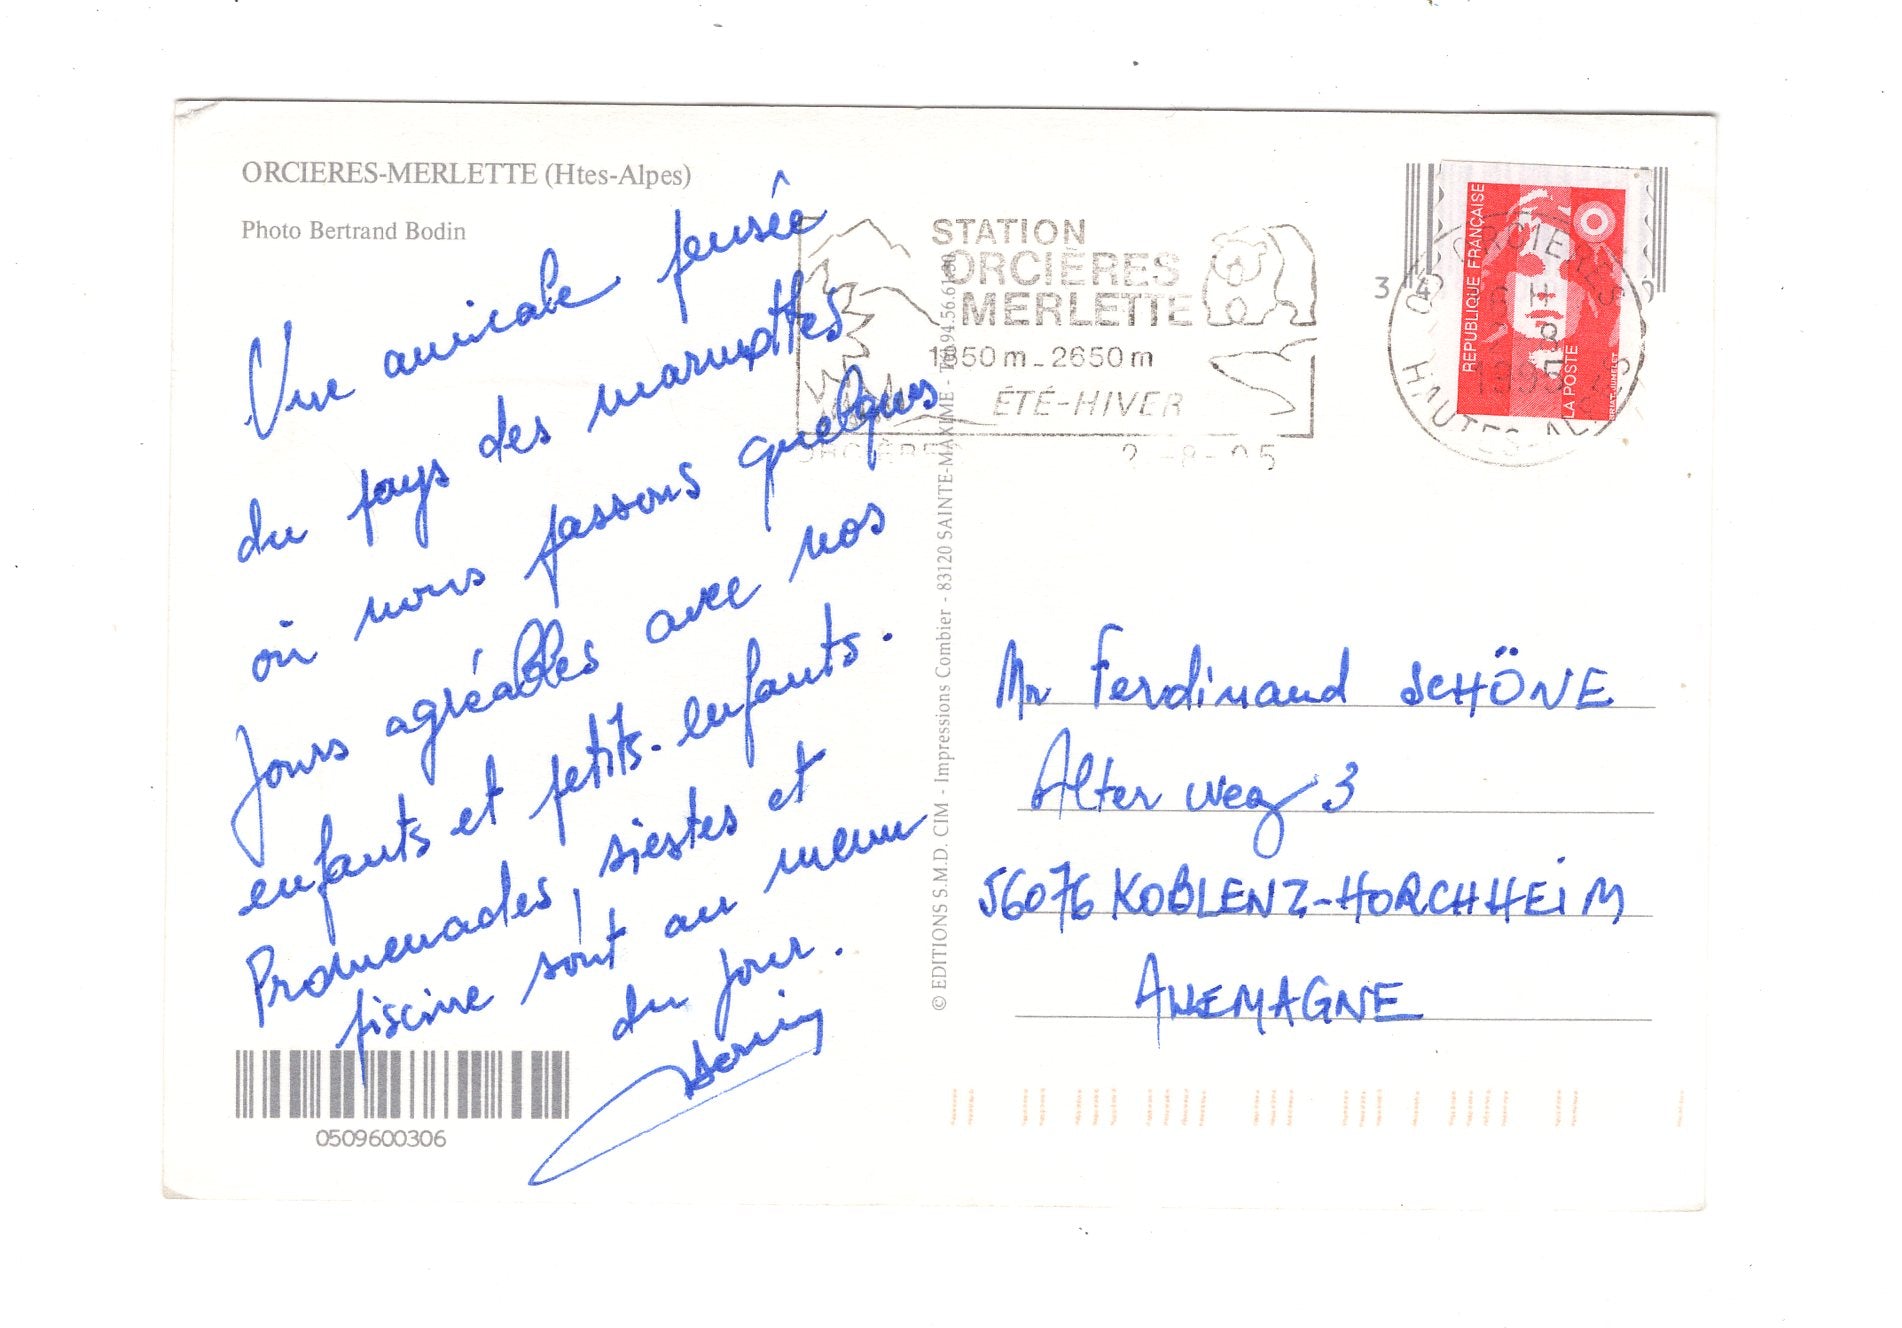 ORCIERES-MERLETTE (Htes-Alpes)
Photo Bertrand Bodin
Une amicale pensée
du pays des marmottes
où nous passons quelques
jours agréables avec nos
enfants et petits-enfants.
Promenades, siestes et
piscine sont au menu
du jour.
0509600306
© EDITIONS S.M.D. CIM - Impressions Combier - 83120 SAINTE-MAXIME - Tél. 94.56.61.80
STATION
ORCIERES
MERLETTE
1850 m - 2650 m
ÉTÉ-HIVER
ORCIÈRE
2 -8-95
REPUBLIQUE FRANÇAISE
LA POSTE
ORCIERES
HAUTES-ALPES
Mr Ferdinand SCHÖNE
Alter Weg 3
56076 KOBLENZ-HORCHHEIM
ALLEMAGNE